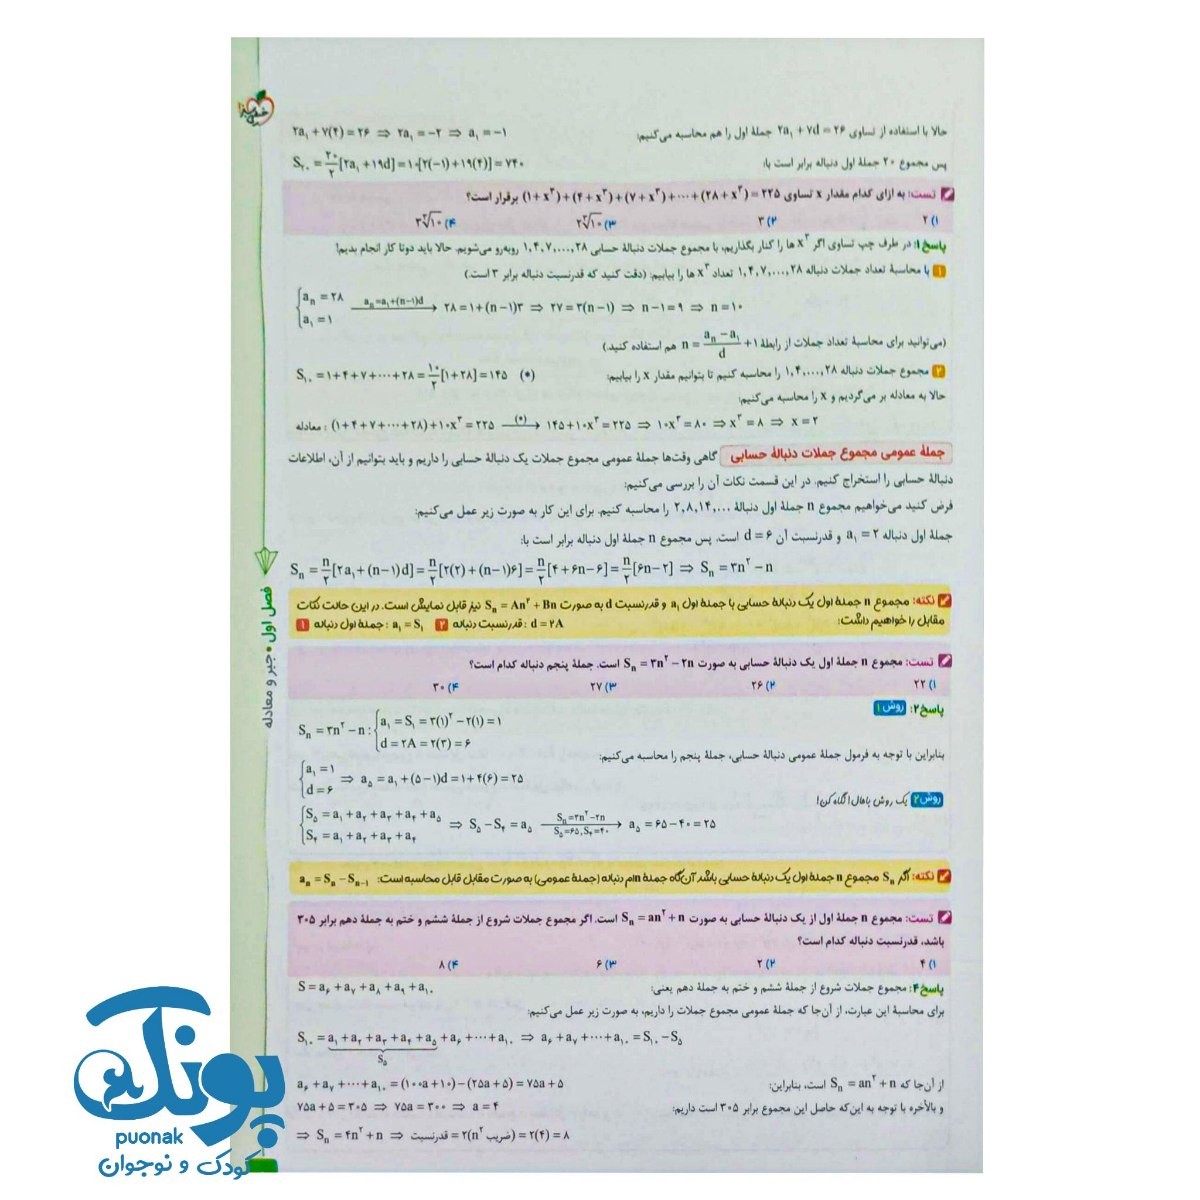 حالا با استفاده از تساوی ۲a₁ + ۷d = ۲۶ جملهٔ اول را هم محاسبه می‌کنیم: ۲a₁ + ۷(۴) = ۲۶ ⇒ ۲a₁ = −۲ ⇒ a₁ = −۱
پس مجموع ۲۰ جملهٔ اول دنباله برابر است با: S₂₀ = ۲۰/۲ [۲a₁ + ۱۹d] = ۱۰[۲(−۱) + ۱۹(۴)] = ۷۴۰
تست: به ازای کدام مقدار x تساوی (۱ + x³) + (۴ + x³) + (۷ + x³) + ⋯ + (۲۸ + x³) = ۲۲۵ برقرار است؟
۱) ۲ ۲) ۳ ۳) ۲∛۱۰ ۴) ۳∛۱۰
پاسخ ۱: در طرف چپ تساوی اگر x³ ها را کنار بگذاریم، با مجموع جملات دنبالهٔ حسابی ۱,۴,۷,...,۲۸ روبه‌رو می‌شویم. حالا باید دوتا کار انجام بدیم!
۱ با محاسبهٔ تعداد جملات دنباله ۱,۴,۷,...,۲۸ تعداد x³ ها را بیابیم: (دقت کنید که قدرنسبت دنباله برابر ۳ است.)
{aₙ = ۲۸ , a₁ = ۱ ⟶ (aₙ=a₁+(n−۱)d) ۲۸ = ۱ + (n−۱)۳ ⇒ ۲۷ = ۳(n−۱) ⇒ n−۱ = ۹ ⇒ n = ۱۰
(می‌توانید برای محاسبهٔ تعداد جملات از رابطهٔ n = (aₙ − a₁)/d + ۱ هم استفاده کنید.)
۲ مجموع جملات دنباله ۱,۴,...,۲۸ را محاسبه کنیم تا بتوانیم مقدار x را بیابیم: S₁₀ = ۱+۴+۷+⋯+۲۸ = ۱۰/۲ [۱+۲۸] = ۱۴۵ (*)
حالا به معادله بر می‌گردیم و x را محاسبه می‌کنیم:
معادله : (۱+۴+۷+⋯+۲۸)+۱۰x³ = ۲۲۵ ⟶(*) ۱۴۵+۱۰x³ = ۲۲۵ ⇒ ۱۰x³ = ۸۰ ⇒ x³ = ۸ ⇒ x = ۲
جملهٔ عمومی مجموع جملات دنبالهٔ حسابی گاهی وقت‌ها جملهٔ عمومی مجموع جملات یک دنبالهٔ حسابی را داریم و باید بتوانیم از آن، اطلاعات
دنبالهٔ حسابی را استخراج کنیم. در این قسمت نکات آن را بررسی می‌کنیم:
فرض کنید می‌خواهیم مجموع n جملهٔ اول دنبالهٔ ۲,۸,۱۴,... را محاسبه کنیم. برای این کار به صورت زیر عمل می‌کنیم:
جملهٔ اول دنباله a₁ = ۲ و قدرنسبت آن d = ۶ است. پس مجموع n جملهٔ اول دنباله برابر است با:
Sₙ = n/۲ [۲a₁+(n−۱)d] = n/۲ [۲(۲)+(n−۱)۶] = n/۲ [۴+۶n−۶] = n/۲ [۶n−۲] ⇒ Sₙ = ۳n² − n
نکته: مجموع n جملهٔ اول یک دنبالهٔ حسابی با جملهٔ اول a₁ و قدرنسبت d به صورت Sₙ = An² + Bn نیز قابل نمایش است. در این حالت نکات
مقابل را خواهیم داشت: ۱ جملهٔ اول دنباله : a₁ = S₁ ۲ قدرنسبت دنباله : d = ۲A
تست: مجموع n جملهٔ اول یک دنبالهٔ حسابی به صورت Sₙ = ۳n² − ۲n است. جملهٔ پنجم دنباله کدام است؟
۱) ۲۲ ۲) ۲۶ ۳) ۲۷ ۴) ۳۰
پاسخ ۲: روش ۱ Sₙ = ۳n² − n : {a₁ = S₁ = ۳(۱)² − ۲(۱) = ۱ , d = ۲A = ۲(۳) = ۶
بنابراین با توجه به فرمول جملهٔ عمومی دنبالهٔ حسابی، جملهٔ پنجم را محاسبه می‌کنیم:
{a₁ = ۱ , d = ۶ ⇒ a₅ = a₁ + (۵−۱)d = ۱ + ۴(۶) = ۲۵
روش ۲ یک روش باحال! نگاه کن!
{S₅ = a₁ + a₂ + a₃ + a₄ + a₅ , S₄ = a₁ + a₂ + a₃ + a₄ ⇒ S₅ − S₄ = a₅ ⟶ (Sₙ=۳n²−۲n , S₅=۶۵, S₄=۴۰) a₅ = ۶۵ − ۴۰ = ۲۵
نکته: اگر Sₙ مجموع n جملهٔ اول یک دنبالهٔ حسابی باشد آن‌گاه جملهٔ nام دنباله (جملهٔ عمومی) به صورت مقابل قابل محاسبه است: aₙ = Sₙ − Sₙ₋₁
تست: مجموع n جملهٔ اول از یک دنبالهٔ حسابی به صورت Sₙ = an² + n است. اگر مجموع جملات شروع از جملهٔ ششم و ختم به جملهٔ دهم برابر ۳۰۵
باشد، قدرنسبت دنباله کدام است؟
۱) ۴ ۲) ۲ ۳) ۶ ۴) ۸
پاسخ ۴: مجموع جملات شروع از جملهٔ ششم و ختم به جملهٔ دهم یعنی: S = a₆ + a₇ + a₈ + a₉ + a₁₀
برای محاسبهٔ این عبارت، از آن‌جا که جملهٔ عمومی مجموع جملات را داریم، به صورت زیر عمل می‌کنیم:
S₁₀ = a₁ + a₂ + a₃ + a₄ + a₅ + a₆ + ⋯ + a₁₀ ⇒ a₆ + a₇ + ⋯ + a₁₀ = S₁₀ − S₅
S₅
از آن‌جا که Sₙ = an² + n است، بنابراین: a₆ + a₇ + ⋯ + a₁₀ = (۱۰۰a+۱۰) − (۲۵a+۵) = ۷۵a + ۵
و بالأخره با توجه به این‌که حاصل این مجموع برابر ۳۰۵ است داریم: ۷۵a + ۵ = ۳۰۵ ⇒ ۷۵a = ۳۰۰ ⇒ a = ۴
⇒ Sₙ = ۴n² + n ⇒ قدرنسبت = ۲(ضریب n²) = ۲(۴) = ۸
فصل اول • جبر و معادله
پونک
puonak
کودک و نوجوان